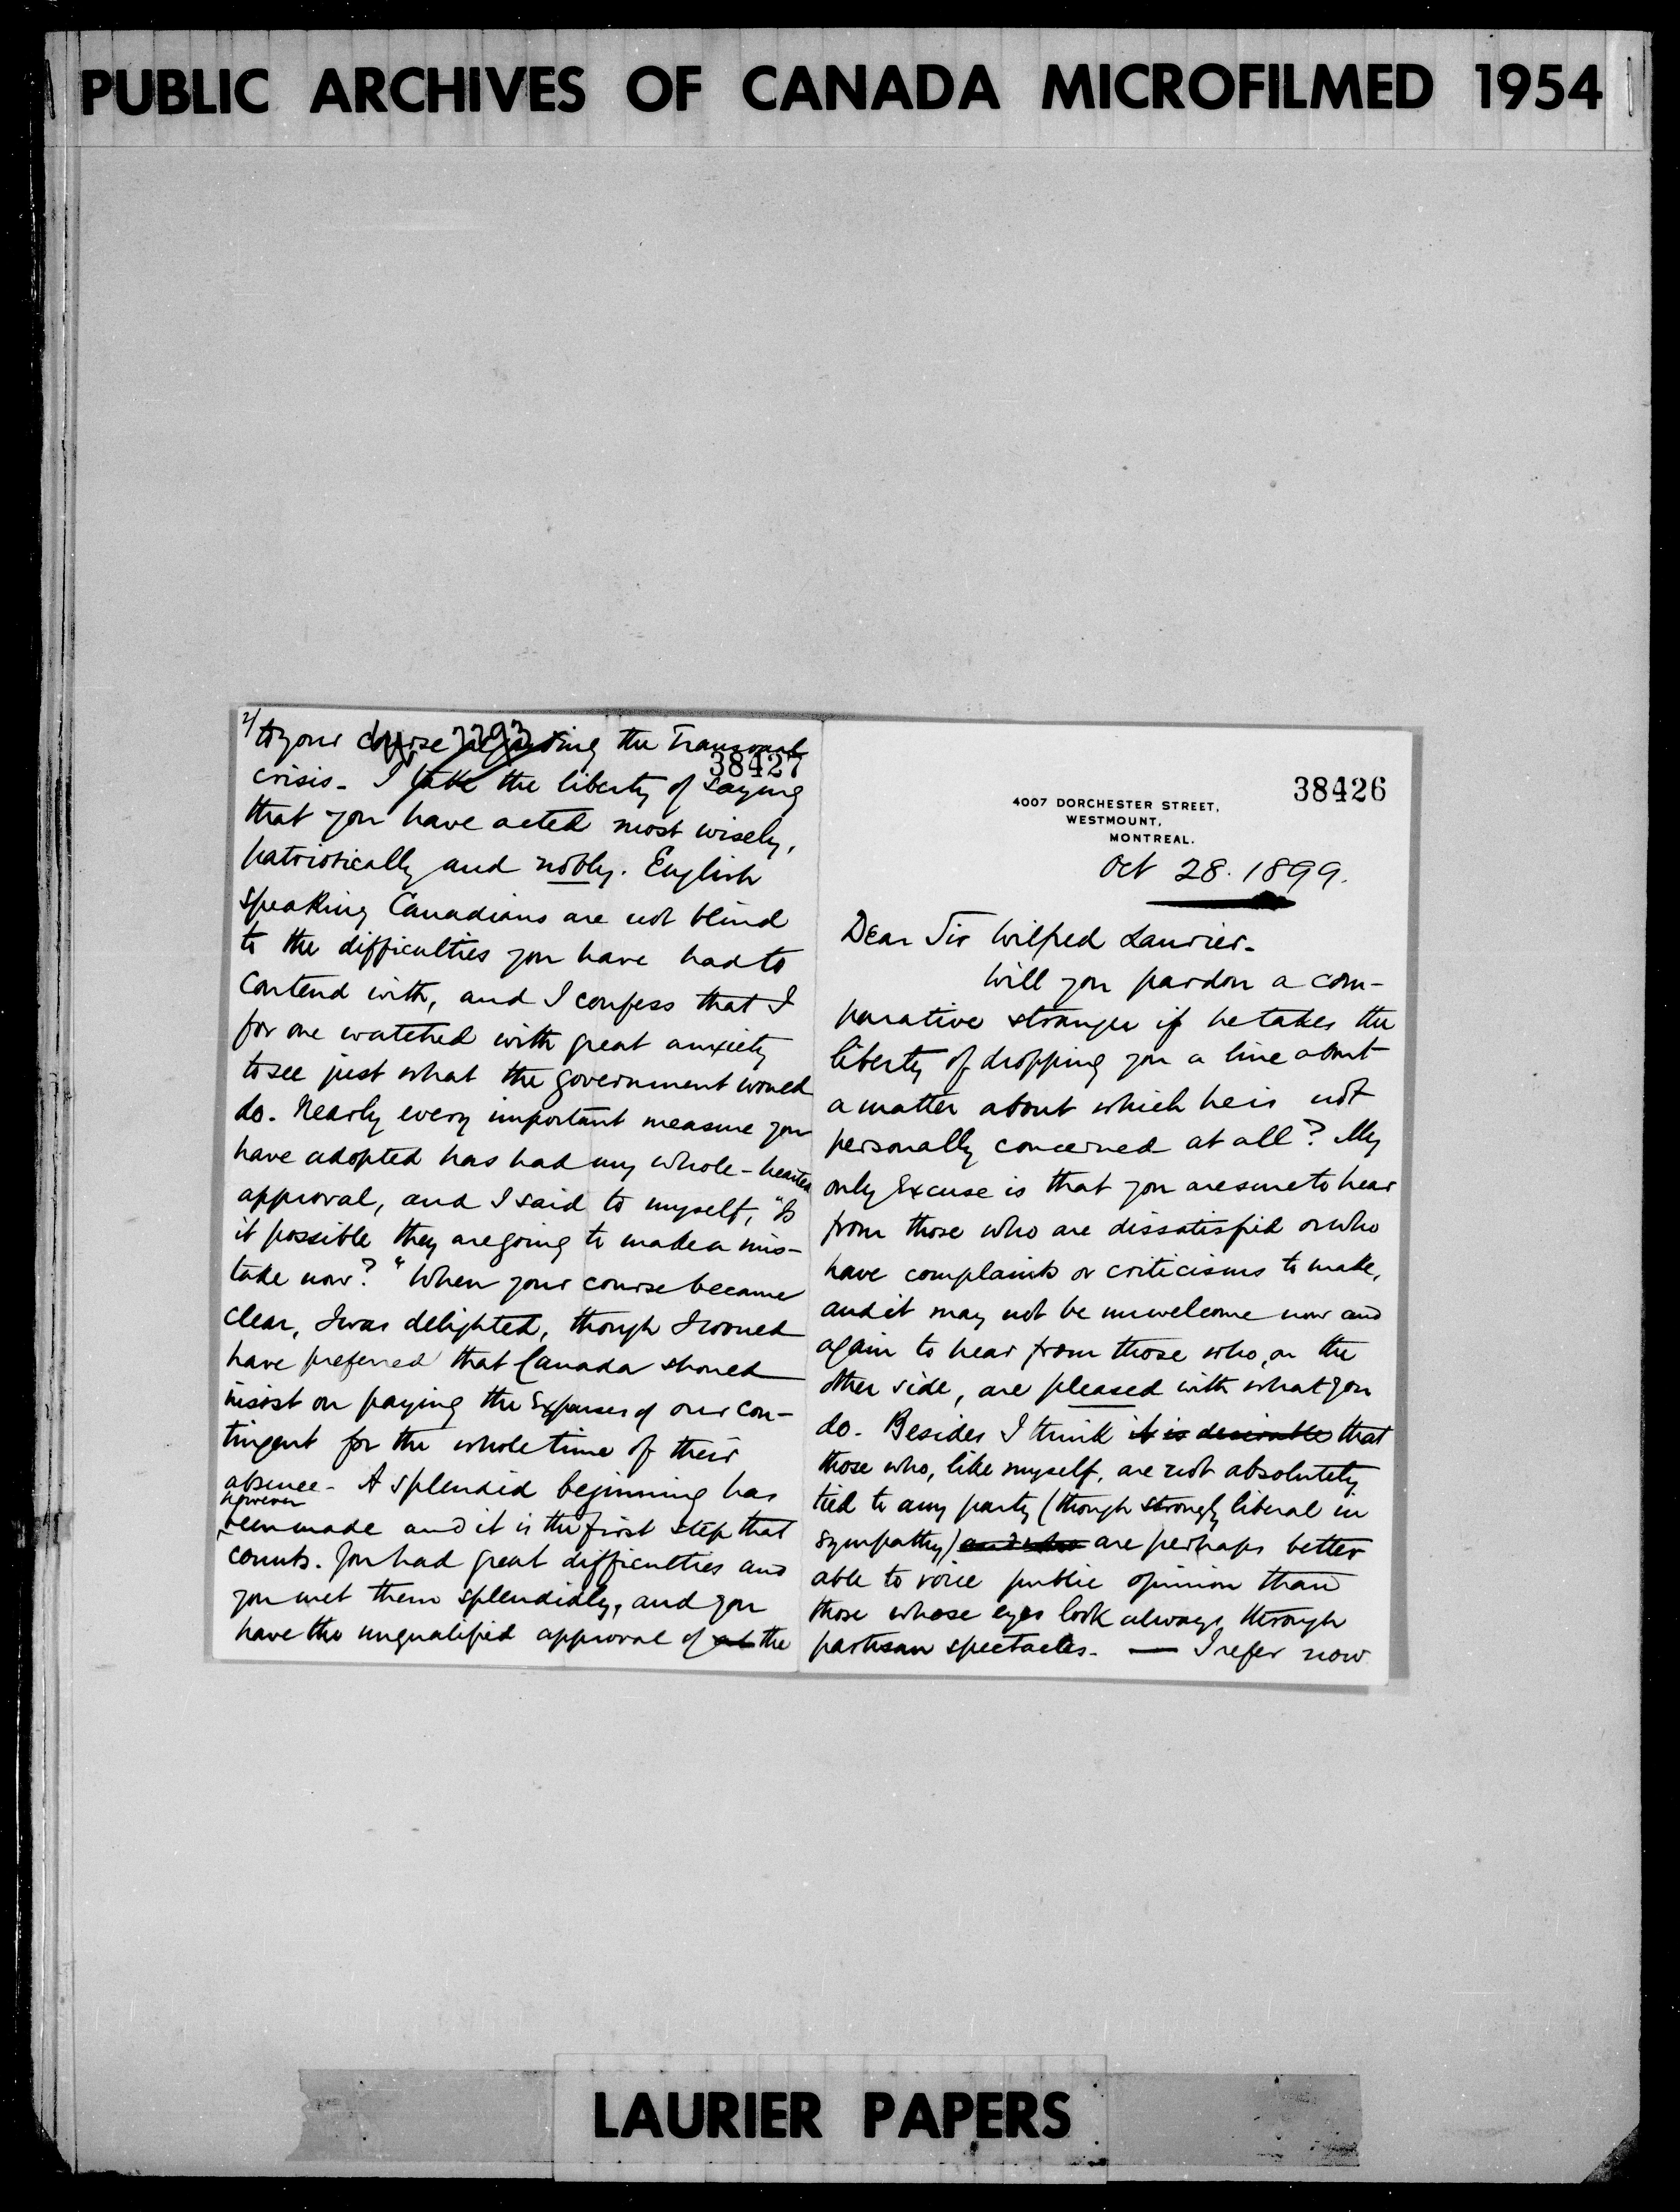 PUBLIC ARCHIVES OF CANADA MICROFILMED 1954
38426
4007 DORCHESTER STREET,
WESTMOUNT,
MONTREAL.
Oct 28. 1899.
Dear Sir Wilfred Laurier.
Will you pardon a com-
parative stranger if he takes the
liberty of dropping you a line about
a matter about which he is not
personally concerned at all? My
only excuse is that you are sure to hear
from those who are dissatisfied or who
have complaints or criticisms to make,
and it may not be unwelcome now and
again to hear from those who, on the
other side, are pleased with what you
do. Besides I think it is desirable that
those who, like myself, are not absolutely
tied to any party (though strongly liberal in
sympathy) and who are perhaps better
able to voice public opinion than
those whose eyes look always through
partisan spectacles. — I refer now
2/
to your course regarding the Transvaal
38427
crisis. I take the liberty of saying
that you have acted most wisely,
patriotically and nobly. English
speaking Canadians are not blind
to the difficulties you have had to
contend with, and I confess that I
for one watched with great anxiety
to see just what the government would
do. Nearly every important measure you
have adopted has had my whole-hearted
approval, and I said to myself, "Is
it possible they are going to make a mis-
take now?" When your course became
clear, I was delighted, though I would
have preferred that Canada should
insist on paying the expenses of our con-
tingent for the whole time of their
absence. A splendid beginning has
however
been made and it is the first step that
counts. You had great difficulties and
you met them splendidly, and you
have the unqualified approval of the
LAURIER PAPERS